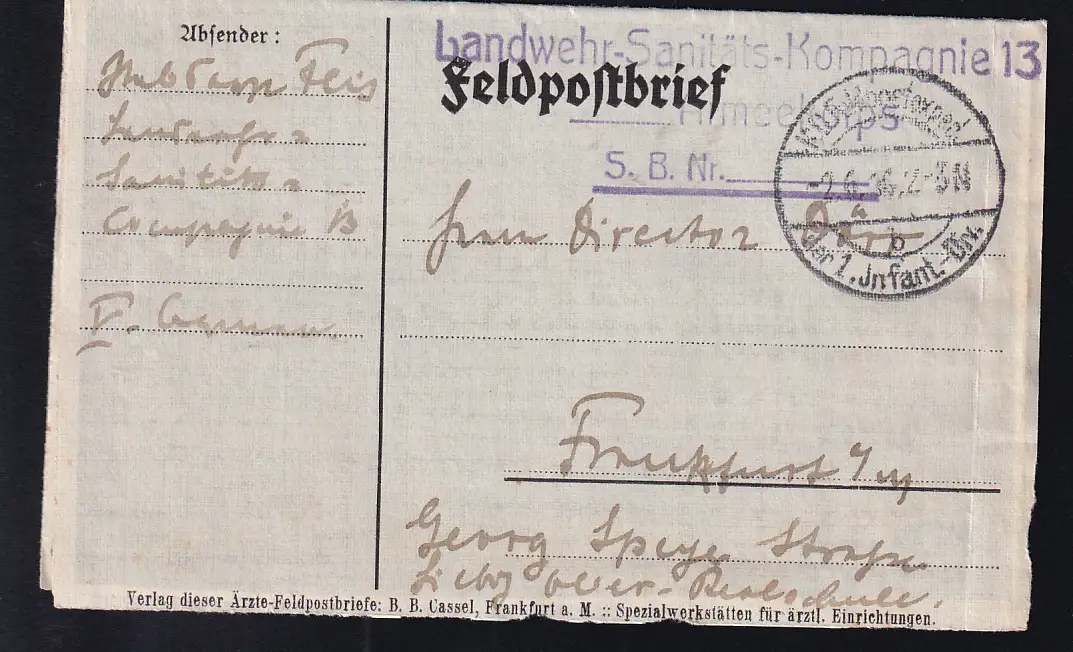 Absender:
Flis
Landwehr-
Sanitäts-
Compagnie 13
V.
Landwehr-Sanitäts-Kompagnie 13
Feldpostbrief
Armeekorps
S. B. Nr.
Kgl. Pr. Feldpostexped.
der 1. Infant.-Div.
b
Herrn Director
Frankfurt a/M
Georg Speyer Strasse
Liebig Ober-Realschule.
Verlag dieser Ärzte-Feldpostbriefe: B. B. Cassel, Frankfurt a. M. :: Spezialwerkstätten für ärztl. Einrichtungen.